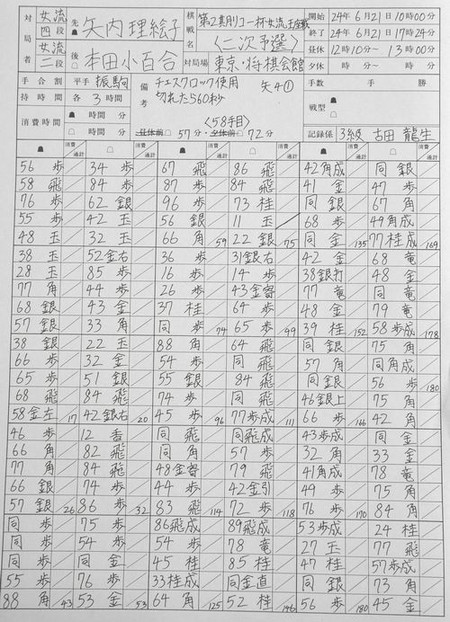 対局者
女流四段 先 矢内 理絵子
女流二段 後 本田 小百合
棋戦名 第2期リコー杯女流王座戦
<二次予選>
対局場 東京・将棋会館
開始 24年6月21日10時00分
終了 24年6月21日 時 分
昼休 12時10分〜13時00分
夕休 時 分〜 時 分
手合割 平手 振駒
持時間 各3時間
消費時間 時間 分
時間 分
備考 チェスクロック使用
切れたら60秒
矢4①
<58手目>
昼休前 57分・夕休前 72分
手数 手 勝
戦型
記録係 3級 古田 龍生
消費 通計 消費 通計 消費 通計 消費 通計 消費 通計 消費 通計
56 歩 34 歩 67 飛 86 飛 42角成 同 銀
58 飛 84 歩 87 歩 84 飛 41 金 47 歩
76 歩 62 銀 96 歩 73 桂 同 銀 67 角
55 歩 42 玉 56 銀 11 玉 68 歩 49角成
48 玉 32 玉 66 角 59 22 銀 75 同 金 135 77桂成 169
38 玉 52金右 36 歩 31銀右 42 歩 68 竜
28 玉 85 歩 16 歩 14 歩 38銀打 48 金
77 角 44 歩 26 歩 43金寄 77 竜 同 竜
68 銀 43 金 37 桂 64 歩 48 金 79 竜
57 銀 33 角 同 歩 74 65 歩 99 39 桂 152 58歩成 178
38 銀 22 玉 88 角 64 飛 同 銀 75 角
66 歩 32 金 54 歩 同 飛 57 角 同角成
65 歩 51 銀 55 銀 84 飛 同 銀 56 歩 180
68 飛 84 飛 74 歩 同 歩 46銀上 75 角
58金左 17 42銀右 20 45 歩 96 77歩成 111 66 歩 166 42 角
46 歩 12 香 同 飛 同飛成 43歩成 同 金
66 角 82 飛 同 飛成 57 歩 32 角 33 金
77 角 84 飛 48金寄 79 飛 41角成 78 竜
66 銀 74 歩 44 歩 42金引 49 歩 75 角
57 銀 26 86 歩 32 83 飛 114 72 歩 118 76 歩 170 84 角
同 歩 75 歩 86飛成 89飛成 53歩成 24 桂
同 歩 54 歩 54 歩 78 竜 27 玉 77 飛
同 歩 同 金 45 桂 85 桂 47 桂 57歩成
55 歩 76 歩 33桂成 同金直 同 銀 73 角
88 角 43 53 金 53 64 角 125 52 桂 146 56 歩 180 45 金